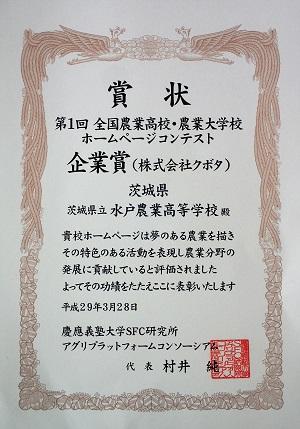 賞状
第1回 全国農業高校・農業大学校
ホームページコンテスト
企業賞（株式会社クボタ）
茨城県
茨城県立 水戸農業高等学校 殿
貴校ホームページは夢のある農業を描き
その特色のある活動を表現し農業分野の
発展に貢献していると評価されました
よってその功績をたたえここに表彰いたします
平成29年3月28日
慶應義塾大学SFC研究所
アグリプラットフォームコンソーシアム
代表 村井 純